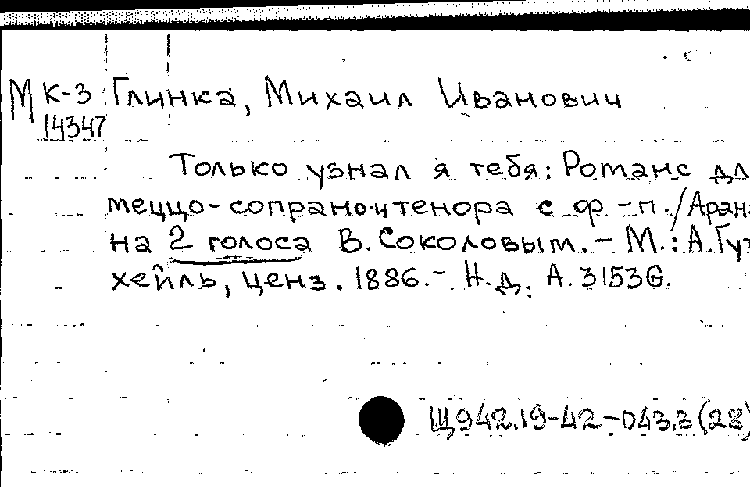 М К-3 Глинка, Михаил Иванович
14347
Только узнал я тебя: Романс дл
меццо-сопрано и тенора с ф-п./Аран
на 2 голоса В. Соколовым. - М.: А. Гут
хейль, ценз. 1886. - Н. д. А. 3153 G.
Щ942.19-42-043.3(28)